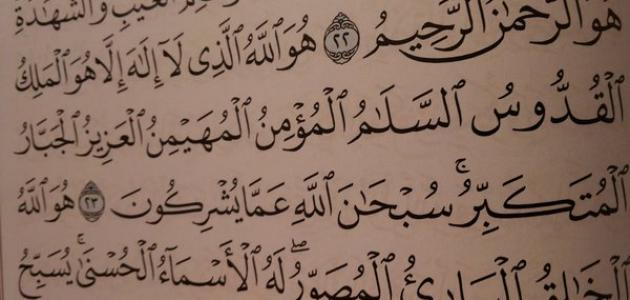 عَٰلِمُ ٱلْغَيْبِ وَٱلشَّهَٰدَةِ
هُوَ ٱلرَّحْمَٰنُ ٱلرَّحِيمُ ٢٢ هُوَ ٱللَّهُ ٱلَّذِى لَآ إِلَٰهَ إِلَّا هُوَ ٱلْمَلِكُ
ٱلْقُدُّوسُ ٱلسَّلَٰمُ ٱلْمُؤْمِنُ ٱلْمُهَيْمِنُ ٱلْعَزِيزُ ٱلْجَبَّارُ
ٱلْمُتَكَبِّرُ ۚ سُبْحَٰنَ ٱللَّهِ عَمَّا يُشْرِكُونَ ٢٣ هُوَ ٱللَّهُ
ٱلْخَٰلِقُ ٱلْبَارِئُ ٱلْمُصَوِّرُ ۖ لَهُ ٱلْأَسْمَآءُ ٱلْحُسْنَىٰ ۚ يُسَبِّحُ